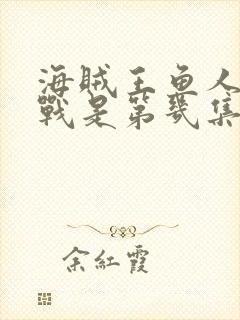 海贼王鱼人
戰是第幾集
余紅霞